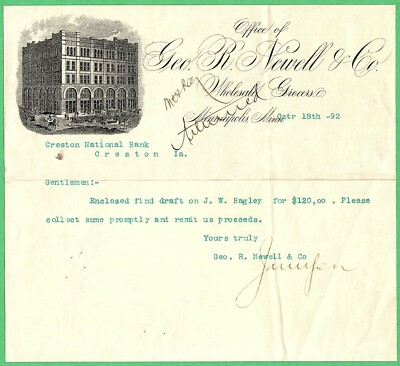 Office of
Geo. R. Newell & Co.
Wholesale Grocers.
Minneapolis, Minn Octr 18th -92
Answered
Creston National Bank
Creston Ia.
Gentlemen:-
Enclosed find draft on J. W. Bagley for $120,00 . Please
collect same promptly and remit us proceeds.
Yours truly
Geo. R. Newell & Co